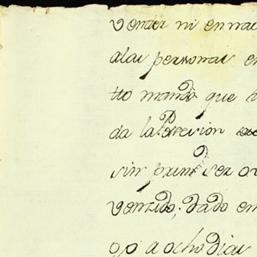 vender ni enna
alas personas en
tto mando que
da la Precision
sin prim.º ser o
venzido; dado en
o,o a ocho dias